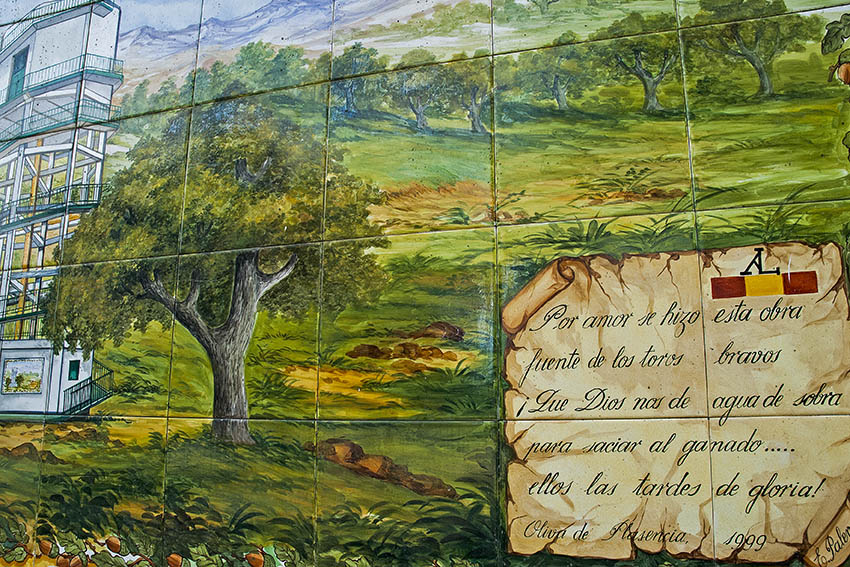 AL
Por amor se hizo esta obra
fuente de los toros bravos
¡Que Dios nos de agua de sobra
para saciar al ganado.....
ellos las tardes de gloria!
Oliva de Plasencia, 1999